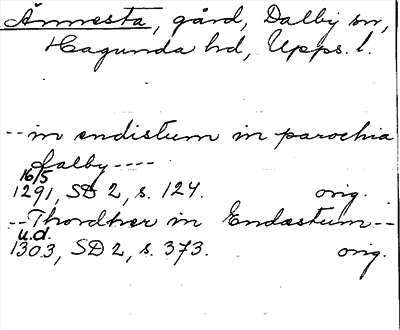 Ännesta, gård, Dalby sn,
Hagunda hd, Upps. l.
--in endistum in parochia
dalby----
16/5
1291, SD 2, s. 124. orig.
--Thordher in Endæstum--
u.d.
1303, SD 2, s. 373. orig.